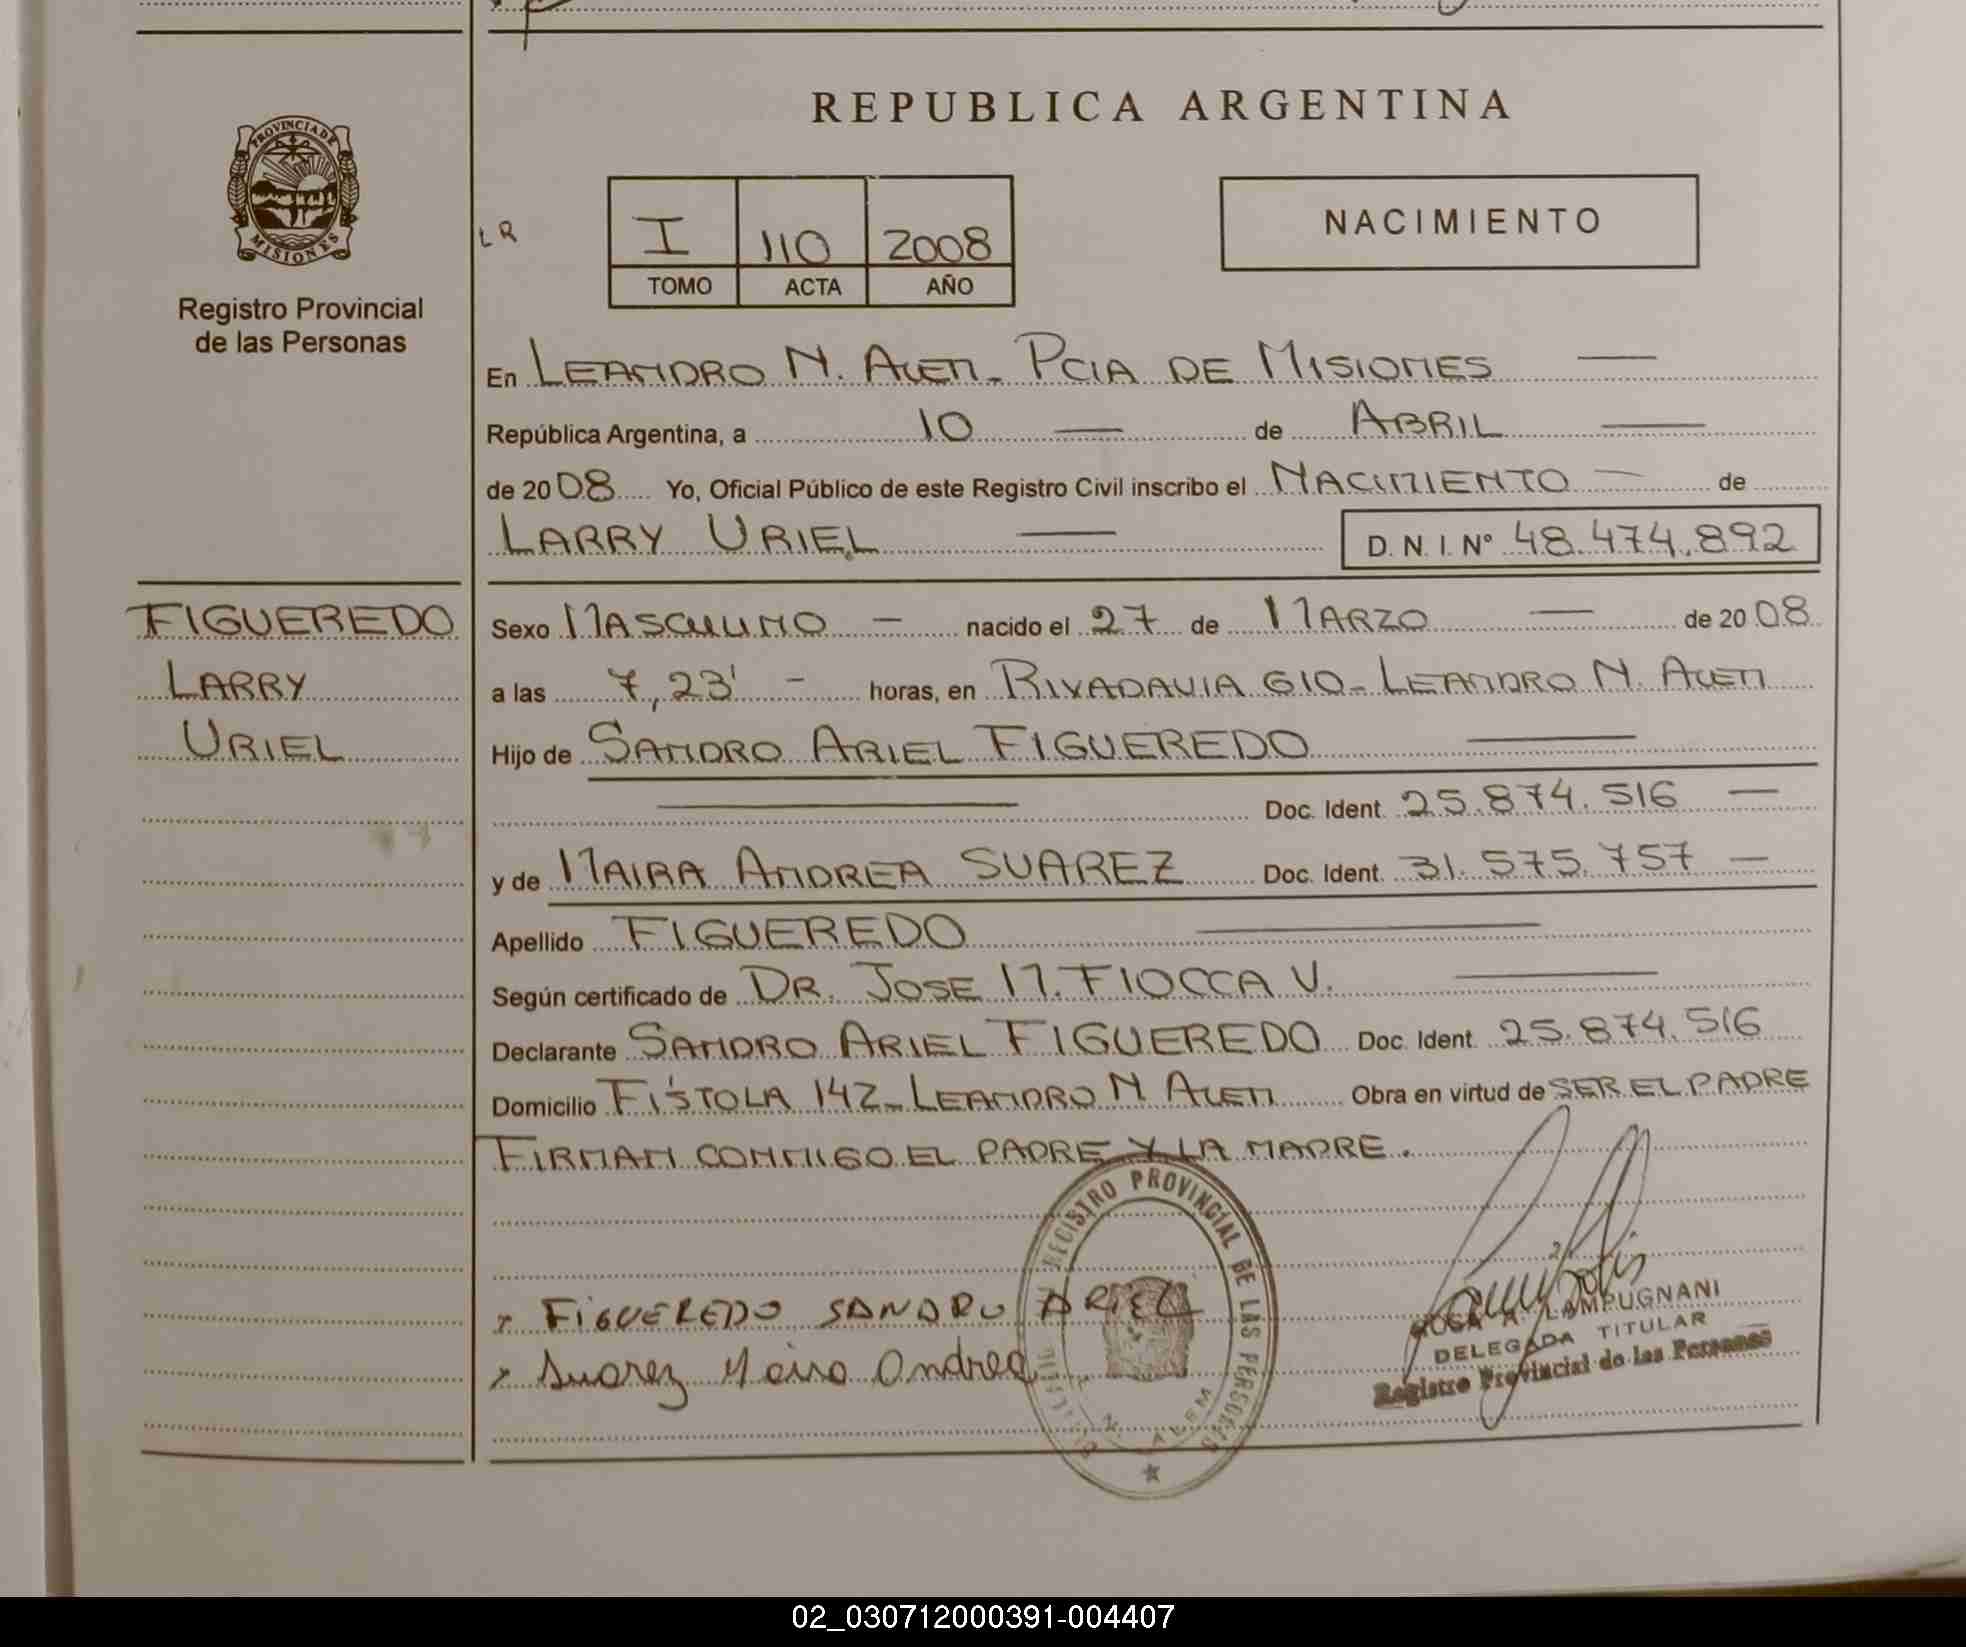 REPUBLICA ARGENTINA
PROVINCIA DE
MISIONES
Registro Provincial
de las Personas
LR
I 110 2008
TOMO ACTA AÑO
NACIMIENTO
En LEANDRO N. ALEM - PCIA DE MISIONES
República Argentina, a 10 de ABRIL
de 2008 Yo, Oficial Público de este Registro Civil inscribo el NACIMIENTO de
LARRY URIEL D.N.I. Nº 48.474.892
FIGUEREDO
LARRY
URIEL
Sexo MASCULINO - nacido el 27 de MARZO de 2008
a las 7,23' - horas, en RIVADAVIA 610 - LEANDRO N. ALEM
Hijo de SANDRO ARIEL FIGUEREDO
Doc. Ident. 25.874.516
y de MAIRA ANDREA SUAREZ Doc. Ident. 31.575.757
Apellido FIGUEREDO
Según certificado de DR. JOSE M. FIOCCA V.
Declarante SANDRO ARIEL FIGUEREDO Doc. Ident. 25.874.516
Domicilio FÍSTOLA 142 - LEANDRO N ALEM Obra en virtud de SER EL PADRE
FIRMAN CONMIGO EL PADRE Y LA MADRE.
REGISTRO PROVINCIAL DE LAS PERSONAS
N. ALEM
x FIGUEREDO SANDRO ARIEL
x Suarez Maira Andrea
ROSA A. LAMPUGNANI
DELEGADA TITULAR
Registro Provincial de las Personas
02_030712000391-004407